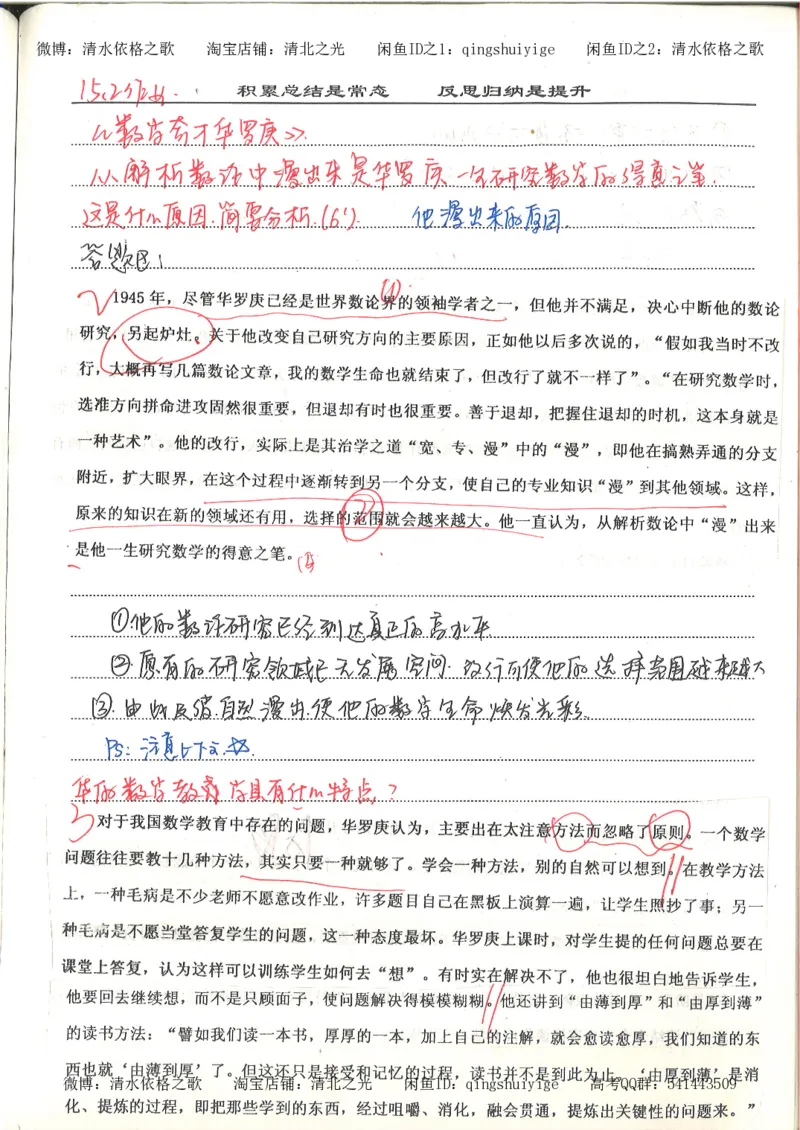 微博：清水依格之歌 淘宝店铺：清北之光 闲鱼ID之1：qingshuiyige 闲鱼ID之2：清水依格之歌
积累总结是常态 反思归纳是提升
《数学奇才华罗庚》.
从解析数论中漫出来是华罗庚一生研究数学的得意之笔.
这是什么原因.简要分析.(6') 他漫出来的原因.
答题区：
2 1945 年，尽管华罗庚已经是世界数论界的领袖学者之一，但他并不满足，决心中断他的数论
研究，另起炉灶。关于他改变自己研究方向的主要原因，正如他以后多次说的，“假如我当时不改
行，大概再写几篇数论文章，我的数学生命也就结束了，但改行了就不一样了”。“在研究数学时，
选准方向拼命进攻固然很重要，但退却有时也很重要。善于退却，把握住退却的时机，这本身就是
一种艺术”。他的改行，实际上是其治学之道“宽、专、漫”中的“漫”，即他在搞熟弄通的分支
附近，扩大眼界，在这个过程中逐渐转到另一个分支，使自己的专业知识“漫”到其他领域。这样，
原来的知识在新的领域还有用，选择的范围就会越来越大。他一直认为，从解析数论中“漫”出来
是他一生研究数学的得意之笔。
①他的数论研究已经到达真正的高水平
②原有的研究领域已无发展空间.改行可使他的选择范围越来越大
③.由此及彼.自然漫出.使他的数学生命焕发光彩.
Ps：注意上下文.
华的数学教育具有什么特点？
3 对于我国数学教育中存在的问题，华罗庚认为，主要出在太注意方法而忽略了原则。一个数学
问题往往要教十几种方法，其实只要一种就够了。学会一种方法，别的自然可以想到。在教学方法
上，一种毛病是不少老师不愿意改作业，许多题目自己在黑板上演算一遍，让学生照抄了事；另一
种毛病是不愿当堂答复学生的问题，这一种态度最坏。华罗庚上课时，对学生提的任何问题总要在
课堂上答复，认为这样可以训练学生如何去“想”。有时实在解决不了，他也很坦白地告诉学生，
他要回去继续想，而不是只顾面子，使问题解决得模模糊糊。他还讲到“由薄到厚”和“由厚到薄”
的读书方法：“譬如我们读一本书，厚厚的一本，加上自己的注解，就会愈读愈厚，我们知道的东
西也就‘由薄到厚’了。但这还只是接受和记忆的过程，读书并不是到此为止。‘由厚到薄’是消
微博：清水依格之歌 淘宝店铺：清北之光 闲鱼ID：qingshuiyige 高考QQ群：541443509
化、提炼的过程，即把那些学到的东西，经过咀嚼、消化，融会贯通，提炼出关键性的问题来。”